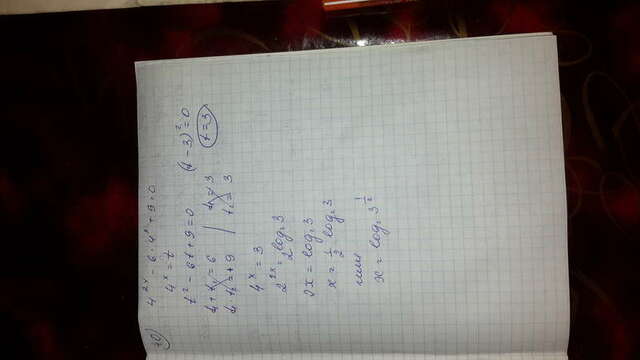 70)
4^{2x} - 6 · 4^x + 9 = 0
4^x = t
t^2 - 6t + 9 = 0 (t - 3)^2 = 0
t_1 + t_2 = 6 | t_1 = 3 t = 3
t_1 · t_2 = +9 | t_2 = 3
4^x = 3
2^{2x} = 2^{log_2 3}
2x = log_2 3
x = \frac{1}{2} log_2 3
или
x = log_2 3^{\frac{1}{2}}